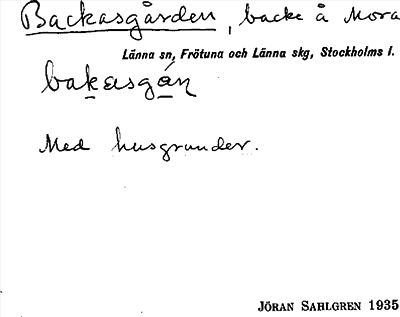 Backasgården, backe å Mora
Länna sn, Frötuna och Länna skg, Stockholms l.
bakasgán
Med husgrunder.
JÖRAN SAHLGREN 1935